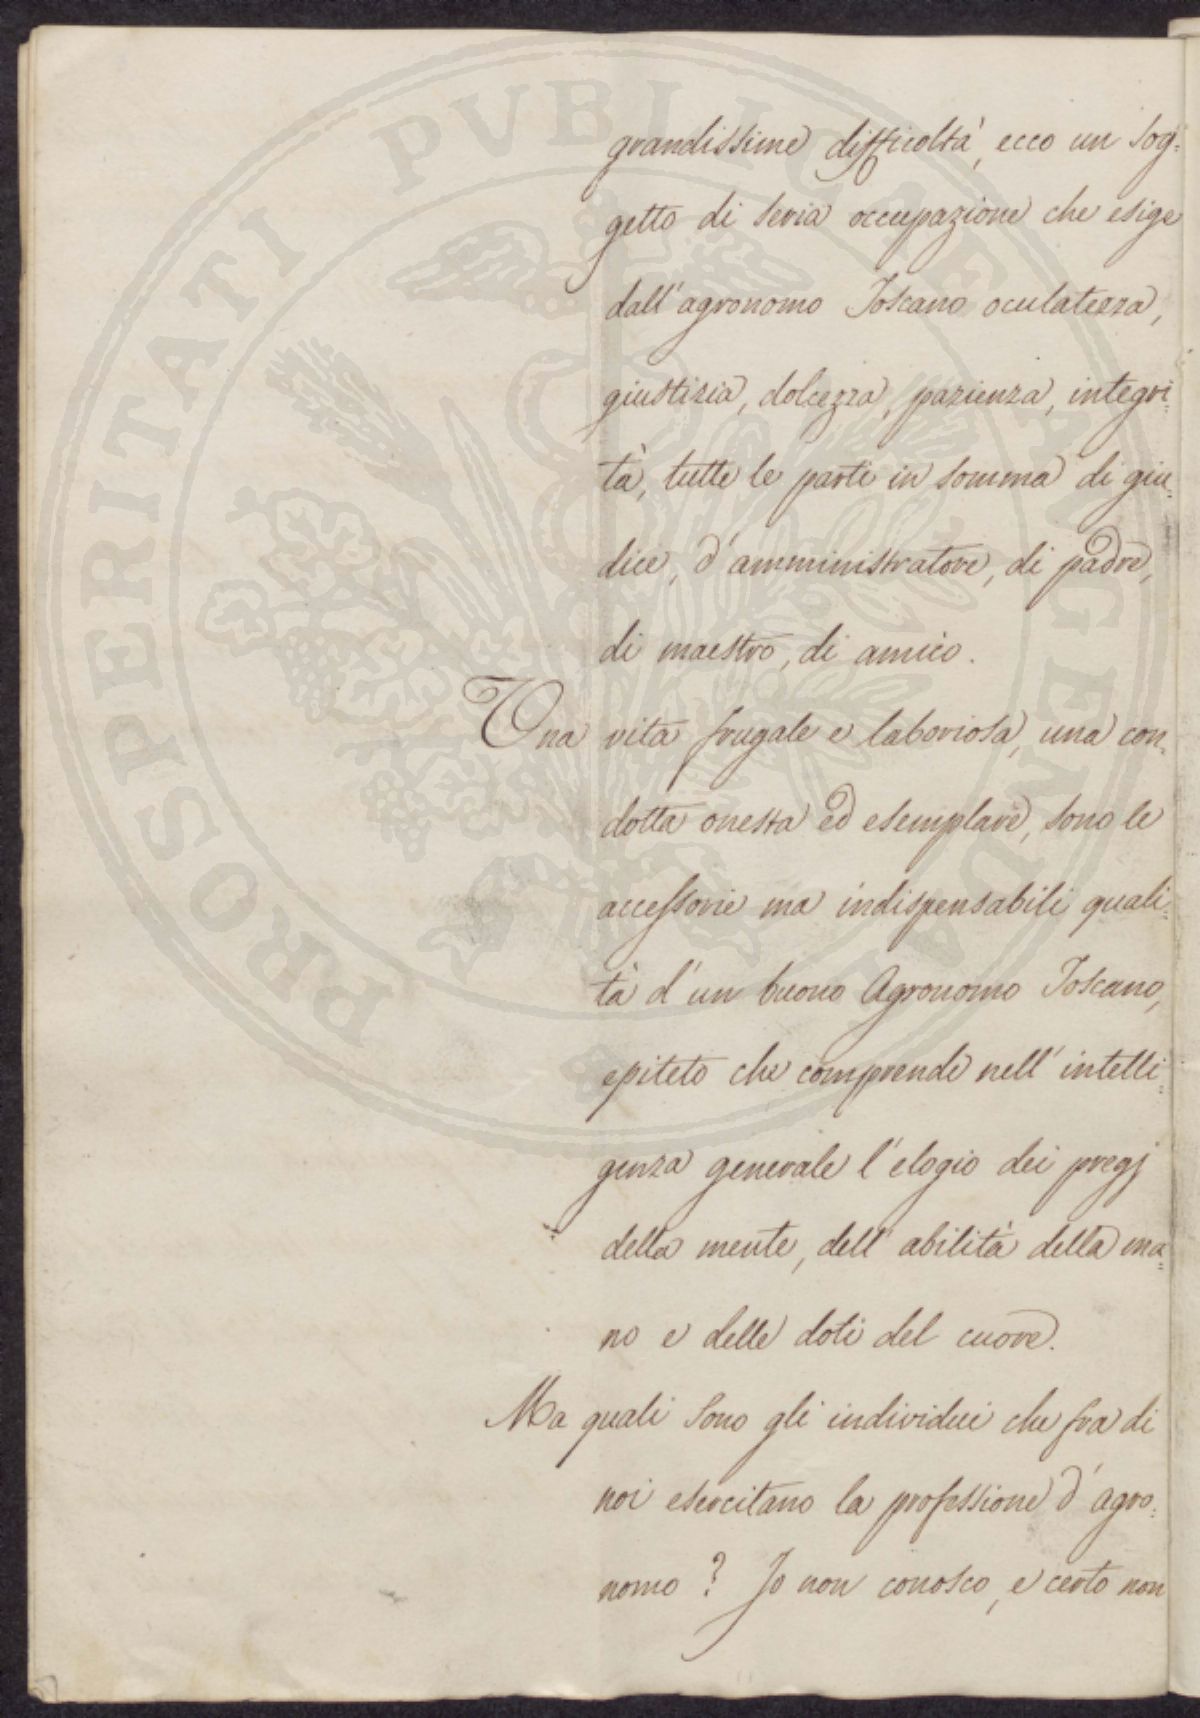 PROSPERITATI PUBLICAE AUGENDAE
grandissime difficoltà, ecco un sog=
getto di seria occupazione che esige
dall'agronomo Toscano oculatezza,
giustizia, dolcezza, pazienza, integri=
tà, tutte le parti in somma di giu=
dice, d'amministratore, di padre,
di maestro, di amico.
Una vita frugale e laboriosa, una con=
dotta onesta ed esemplare, sono le
accessorie ma indispensabili quali=
tà d'un buono Agronomo Toscano,
epiteto che comprende nell'intelli=
genza generale l'elogio dei pregj
della mente, dell'abilità della ma=
no e delle doti del cuore.
Ma quali sono gli individui che fra di
noi esercitano la professione d'agro=
nomo? Io non conosco, e certo non